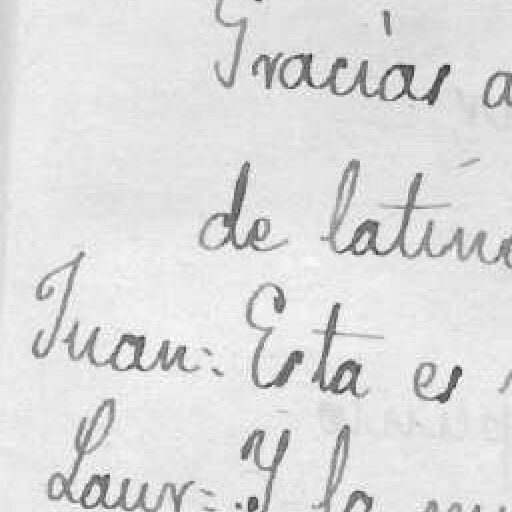 Gracias a
de latin
Juan: Esta es
Laur: Y la